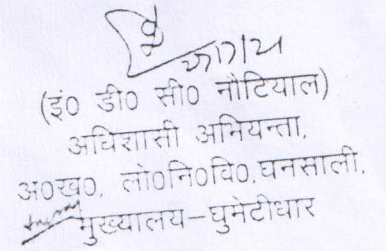 (इं० डी० सी० नौटियाल)
अधिशासी अभियन्ता,
अ०ख०, लो०नि०वि०,घनसाली,
मुख्यालय–घुमेटीधार